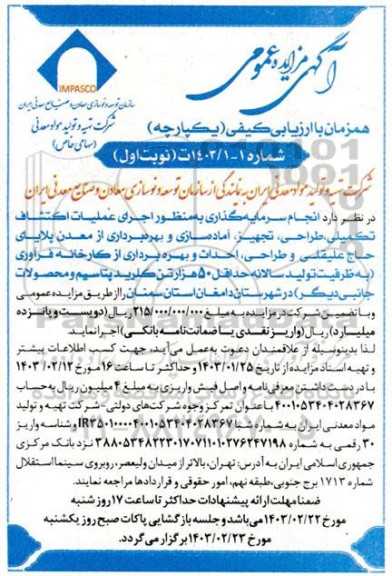 آگهی مزایده عمومی
IMPASCO
سازمان توسعه و نوسازی معادن و صنایع معدنی ایران
شرکت تهیه و تولید مواد معدنی
(سهامی خاص)
همزمان با ارزیابی کیفی (یکپارچه)
شماره ۱-۱۴۰۳/۱ت (نوبت اول)
شرکت تهیه و تولید مواد معدنی ایران به نمایندگی از سازمان توسعه و نوسازی معادن و صنایع معدنی ایران
در نظر دارد انجام سرمایه‌گذاری به‌منظور اجرای عملیات اکتشاف
تکمیلی، طراحی، تجهیز، آماده‌سازی و بهره‌برداری از معدن پلایای
حاج علیقلی و طراحی، احداث و بهره برداری از کارخانه فرآوری
(به ظرفیت تولید سالانه حداقل ۵۰ هزار تن کلرید پتاسیم و محصولات
جانبی دیگر) در شهرستان دامغان استان سمنان را از طریق مزایده عمومی
و با تضمین شرکت در مزایده به مبلغ ۲۱۵/۰۰۰/۰۰۰/۰۰۰ ریال (دویست و پانزده
میلیارد) ریال (واریز نقدی یا ضمانت‌نامه بانکی) اجرا نماید.
لذا بدینوسیله از علاقمندان دعوت به‌عمل می‌آید جهت کسب اطلاعات بیشتر
و تهیه اسناد مزایده از تاریخ ۱۴۰۳/۰۱/۲۵ و حداکثر تا ساعت ۱۶ مورخ ۱۴۰۳/۰۲/۱۲
با در دست داشتن معرفی‌نامه و اصل فیش واریزی به مبلغ ۴ میلیون ریال به‌حساب
۴۰۰۱۰۵۳۴۰۴۰۲۸۳۶۷ با عنوان تمرکز وجوه شرکت‌های دولتی-شرکت تهیه و تولید
مواد معدنی ایران به شماره شبا IR۳۵۰۱۰۰۰۰۴۰۰۱۰۵۳۴۰۴۰۲۸۳۶۷ و شناسه واریز
۳۰ رقمی به شماره ۳۸۸۰۵۳۴۸۲۲۳۰۱۷۰۷۱۱۰۱۰۲۷۶۲۴۷۱۹۸ نزد بانک مرکزی
جمهوری اسلامی ایران به آدرس: تهران، بالاتر از میدان ولیعصر، روبروی سینما استقلال
شماره ۱۷۱۳ برج جنوبی، طبقه نهم، امور حقوقی و قراردادها مراجعه نمایند.
ضمنا مهلت ارائه پیشنهادات حداکثر تا ساعت ۱۷ روز شنبه
مورخ ۱۴۰۳/۰۲/۲۲ می‌باشد و جلسه بازگشایی پاکات صبح روز یکشنبه
مورخ ۱۴۰۳/۰۲/۲۳ برگزار می‌گردد.